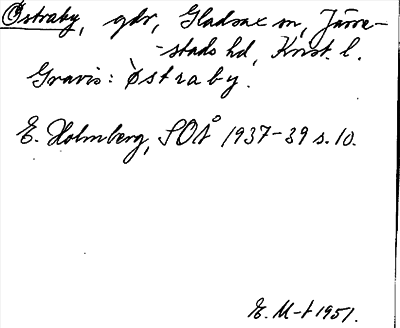 Östraby, gdr, Gladsax sn, Järre-
-stads hd, Krist. l.
Gravis: Östraby.
E. Holmberg, SOÅ 1937-39 s. 10.
E. M-t 1951.